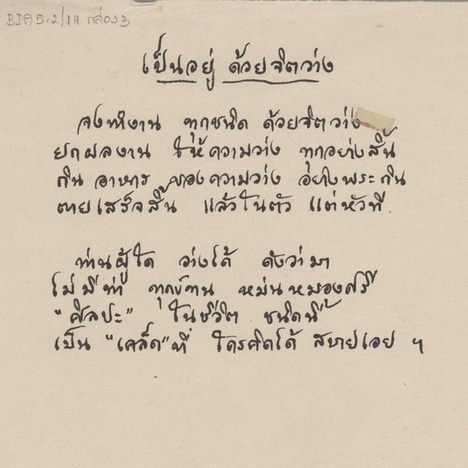 BIA5.2/1A กล่อง3
เป็นอยู่ ด้วยจิตว่าง
จงทำงาน ทุกชนิด ด้วยจิตว่าง
ยกผลงาน ให้ความว่าง ทุกอย่างสิ้น
กิน อาหาร ของความว่าง อย่างพระกิน
ตายเสร็จสิ้น แล้วในตัว แต่หัวที.
ท่านผู้ใด ว่างได้ ดังว่ามา
ไม่มีท่า ทุกข์ทน หม่นหมองศรี
"ศิลปะ" ในชีวิต ชนิดนี้
เป็น "เคล็ด" ที่ ใครคิดได้ สบายเอย ฯ